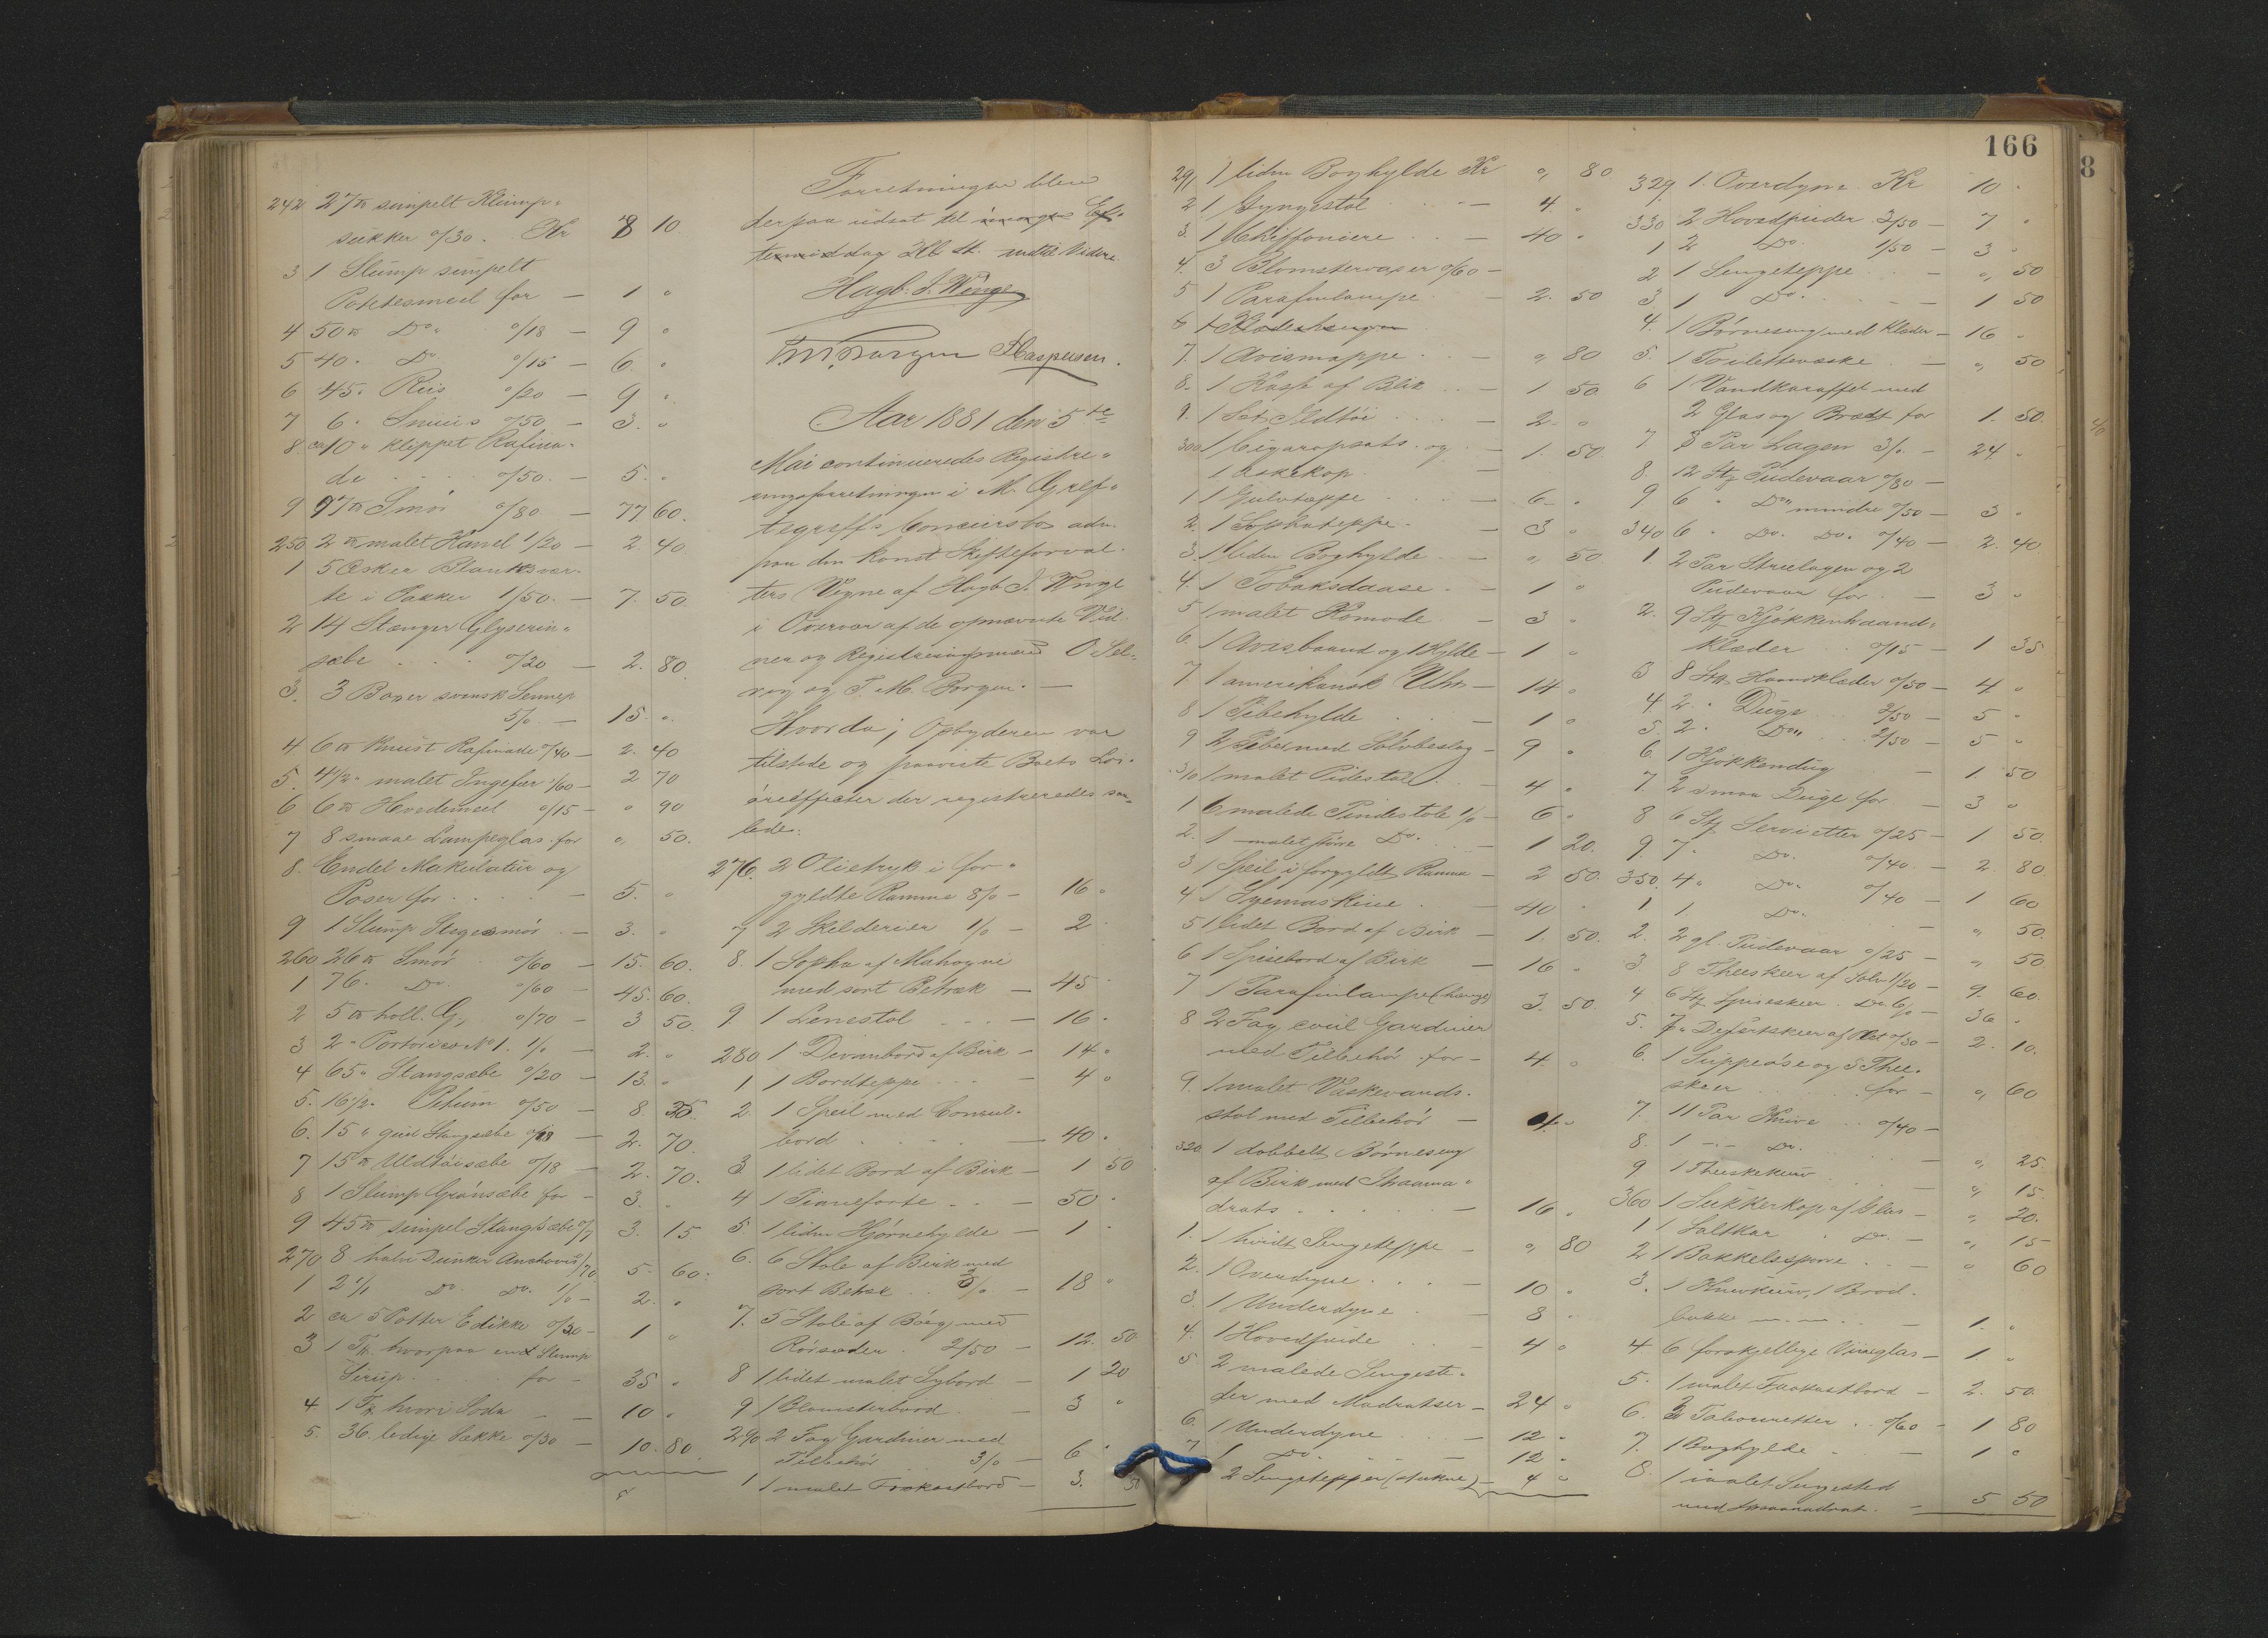 242 27 ℔ simpelt Klump-
sukker o/30. Kr 8 10
3 1 Slump simpelt
Potetesmeel for — 1 "
4 50 ℔ Do " o/18 — 9 "
5 40 " Do o/15 — 6 "
6 45 " Riis o/20 — 9 "
7 6 " o/50 — 3 "
8 ca 10 " klippet Rafina-
de . . . . o/50 — 5 "
9 97 ℔ Smör o/80 — 77 60
250 2 ℔ malet Kanel 1/20 — 2 40
1 5 Æsker Blanksvær-
te i Pakker 1/50 — 7 50
2 14 Stænger Glyserin-
sæbe . . . . o/20 — 2 80
3 3 Boxer svensk Sennep
5/o — 15 "
4 6 ℔ knust Rafinade o/40 — 2 40
5 4 1/2 " malet Ingefær "/60 — 2 70
6 6 ℔ Hvedemel o/15 — " 90
7 8 smaae Lampeglas for " 50
8 Endel Makulatur og
Poser for . . . . — 5 "
9 1 Slump Stegesmör — 3 "
260 26 ℔ Smör o/60 — 15 60
1 76 " Do o/60 — 45 60
2 5 ℔ holl. G, o/70 — 3 50
3 2 " Portorico No 1. 1/o — 2 "
4 65 " Stangsæbe o/20 — 13 "
5 16 1/2 " Petum o/50 — 8 35
6 15 " gul Stangsæbe o/18 — 2 70
7 15 ℔ Uldtöisæbe o/18 — 2 70
8 1 Slump Grönsæbe for — 3 "
9 45 ℔ simpel Stangsæbe o/7 3 15
270 8 halve Dunker Anchovis "/70 5 60
1 2 1/1 Do Do 1/o — 2 "
2 ca 5 Potter Edikke o/20 — 1 "
3 1 Td. hvorpaa end Slump
Sirup . . . . for — 35 "
4 1 Td. hvori Soda — — 10 "
5 36 ledige Sække o/30 — 10 80
Forretningen blev
derpaa udsat til imorgen Ef-
termiddag Kl 4. indtil Videre
Hagb. J. Winge
T. M. Borgen Kaspersen.
Aar 1881 den 5te
Mai continueredes Registre-
ringsforretningen i M. Gref-
tegreffs Concursbo adm.
paa den konst Skifteforval-
ters Vegne af Hagb. J. Winge
i Overvær af de opnævnte Vid-
ner og Registreringsmænd O Sel-
og T. M. Borgen. —
Hvorda; Opbyderen var
tilstede og paaviste Boets Lös-
öreeffecter der registreredes saa-
lede:
276. 2 Olietryk i for-
gyldte Ramme 8/o — 16 "
7 2 Skilderier 1/o — 2
8. 1 Sopha af Mahogni
med sort Betræk — 45
9. 1 Lenestol . . . — 16 "
280 1 Divanbord af Birk — 14 "
1 1 Bordteppe . . . — 4 "
2 1 Speil med Consul-
bord . . . . — 40 "
3 1 lidet Bord af Birk — 1 50
4 1 Pianeforte . . — 50 "
5. 1 liden Hjörnehylde — 1
6. 6 Stole af Birk med
sort Betræk . . 3/o — 18 "
7. 5 Stole af Böeg med
Rörsæder . 2/50 — 12 50
8 1 lidet malet Sybord — 1 20
9 1 Blomsterbord . . — 3 "
290 2 Fag Gardiner med
Tilbehör . . 3/o — 6 "
1 1 malet Frokostbord — 3. 50
166
291 1 liden Boghylde Kr " 80
2 1 Gyngestol . . . — 4 "
3 1 Chiffoniere . . — 40 "
4. 3 Blomstervaser o/60 —
5 1 Parafinlampe . — 2 50
6 1 Klædeshenger
7. 1 Avismappe . . — " 80
8. 1 Kasse af Blik . . — 1 50
9. 1 Set Ildtöi . . . — 2 "
300 1 Cigaropsats og — 1 50
1 askekop —
1 1 Gulvteppe . . . — 6 "
2. 1 Sophateppe . — 3 "
3 1 liden Boghylde . — " 50
4. 1 Tobaksdaase . — 1 "
5 1 malet Komode . — 3 "
6. 1 Avisbaand og 1 Hylde — 1 "
7 1 amerikansk Uhr — 14 "
8 1 Pibehylde . . — 1 "
9 2 Piber med Sölvbeslag — 9 "
310 1 malet Pidestal . — 4 "
1 6 malede Pindestole 1/o — 6 "
2. 1 malet större Do . . — 1 20
3 1 Speil i forgyldt Ramme — 2 50
4 1 Symaskine . — 40 "
5 1 lidet Bord af Birk — 1 50
6 1 Spisebord af Birk — 16 "
7 1 Parafinlampe (hænge) 3 50
8 2 Fag Gardiner
med Tilbehör for — 4 "
9 1 malet Vaskevands-
stol med Tilbehör — 4 "
320 1 dobbelt Börneseng
af Birk med Straama-
drats . . . . . — 16 "
1. 1 hvidt Sengeteppe — " 80
2. 1 Overdyne . . . — 10 "
3. 1 Underdyne . . — 8 "
4. 1 Hovedpude . . — 4 "
5 2 malede Sengeste-
der med Madratser — 24 "
6. 1 Underdyne . . — 12 "
7 1 Do . . — 12 "
2 Sengetepper (strikne) — 4 "
329 1. Overdyne Kr 10 "
330 2 Hovedpuder 3/50 — 7 "
1 2 Do 1/50 — 3 "
2 1 Sengeteppe . . — " 50
3. 1 Do . . . — 1 50
4. 1 Börneseng med Klæder — 16 "
5. 1 Toiletteveske . — " 50
6 1 Vandkaraffel med
2 Glas og Brædt for 1. 50
7. 8 Par Lagen 3/o — 24 "
8. 12 Stk Pudevaar o/80 —
9. 6 " Do " mindre o/50 — 3 "
340 6 " Do. Do. o/40 — 2 40
1. 2 Par Strielagen og 2
Pudevaar for . — 3 "
2. 9 Stk Kjökkenhaand-
klæder . . o/15 — 1 35
3 8 Stk Haandklæder o/50 — 4 "
4 2 " Duge . . 2/50 — 5 "
5 2 " Do " 2/50 — 5 "
6 1 Kjökkendug — 1 50
7. 2 smaa Duge for — 3 "
8 6 Stk Servietter o/25 — 1 50
9. 7 " Do o/40 — 2 80
350 4 " Do " o/40 — 1 60
1 1 Do . — " 50
2. 2 gl. Pudevaar o/25 — " 50
3. 8 Theeskeer af Sölv 1/20 — 9 60
4 6 Stk Spiseskeer Do 6/o — 36 "
5. 7 " Desertskeer af Plet o/30 — 2 10
6. 1 Suppeöse og 5 Thee-
skeer . . . . for — " 60
7. 11 Par Knive . . o/40 —
8. 1 — " — Do . . . — " 25
9. 1 Theeskekurv . . — " 15
360 1 Sukkerkop af Glas — " 20
1 1 Saltkar . Do — " 15
2 1 Bakkelsspore . . — " 60
3. 1 Knivkurv, 1 Bröd-
bakke m. m. . . — 1 "
4 6 forskjellige Viinglas — 1 "
5. 1 malet Frokostbord — 2 50
6. 3 Tabouretter . . o/60 — 1 80
7. 1 Boghylde . — 1 "
8. 1 malet Sengested
med Straamadrat. — 5 50